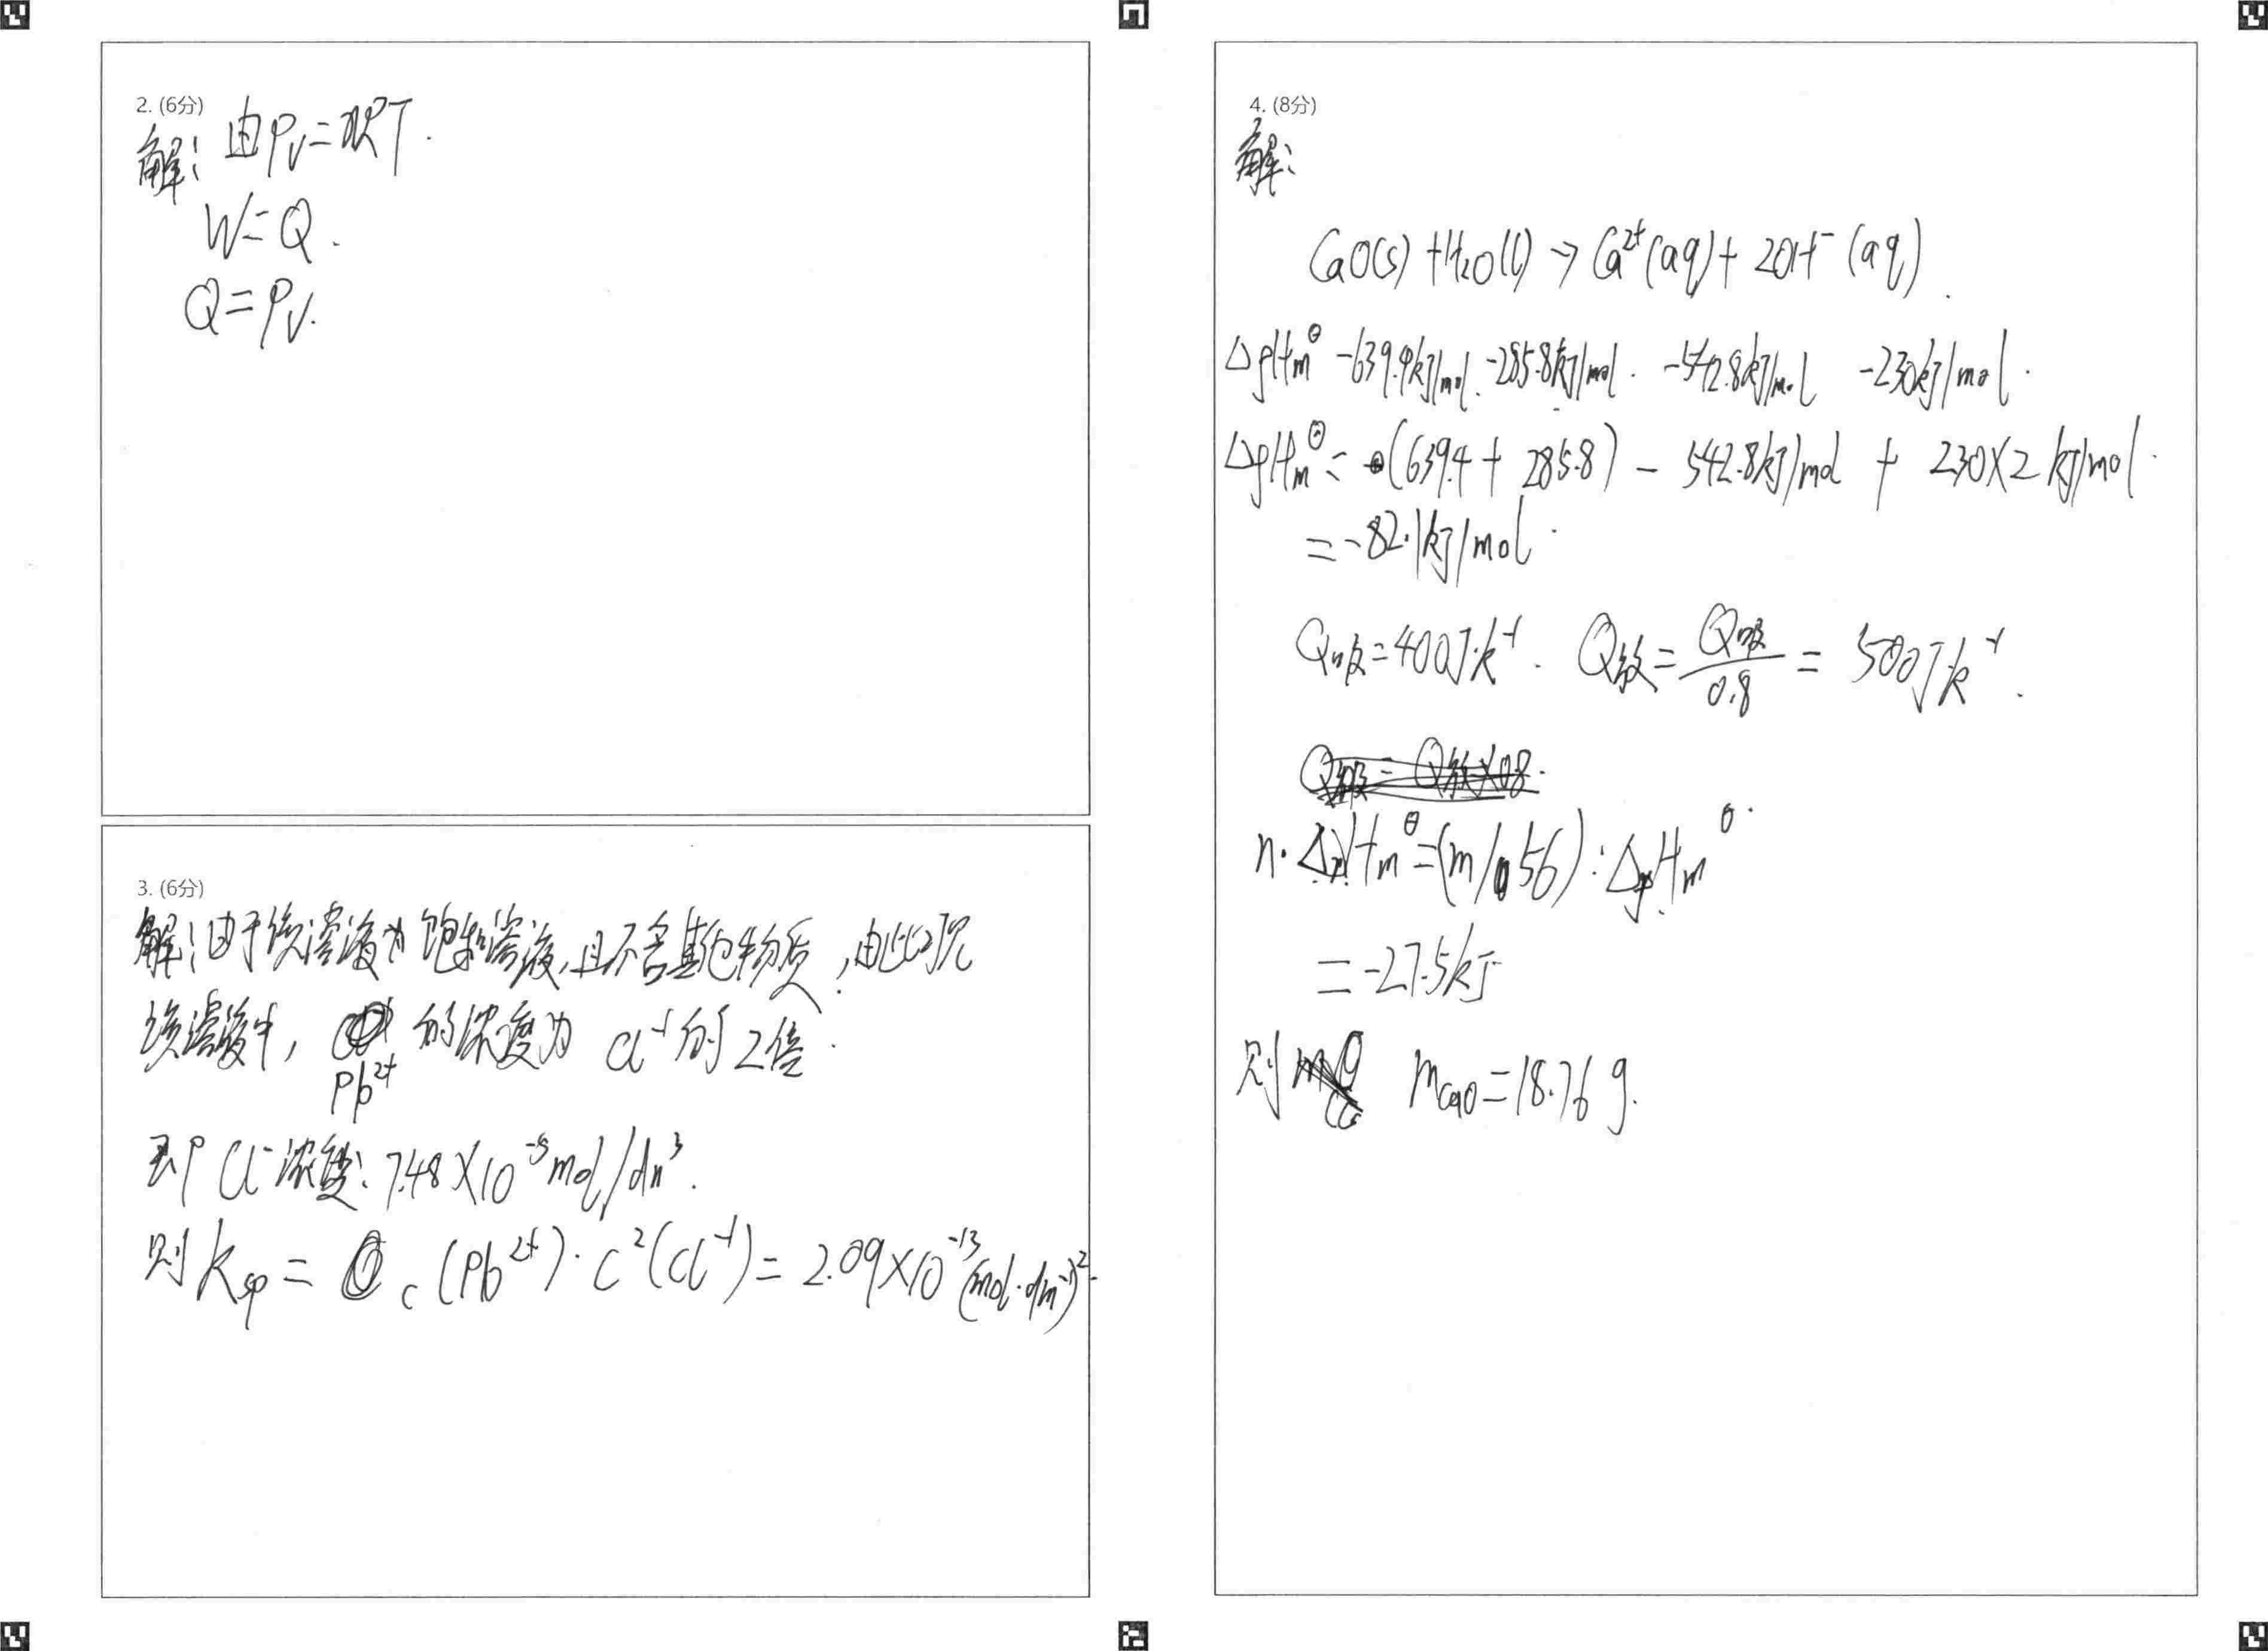 2. (6分)
解: 由PV=nRT.
W=Q.
Q=PV.
3. (6分)
解:由于该溶液为饱和溶液,且不含其他物质,由此可况
该溶液中, Pb²⁺ 的浓度为 Cl⁻¹的2倍.
即 Cl⁻浓度: 7.48×10⁻⁵mol/dm³.
则 Ksp = c(Pb²⁺)·c²(Cl⁻¹)=2.09×10⁻¹³(mol·dm⁻³)².
4. (8分)
解:
CaO(s) + H₂O(l) → Ca²⁺(aq) + 2OH⁻(aq).
ΔfHm^θ -639.4kJ/mol. -285.8kJ/mol. -542.8kJ/mol -230kJ/mol.
ΔfHm^θ = (639.4 + 285.8) - 542.8kJ/mol + 230×2 kJ/mol.
= -82.1kJ/mol.
Q吸=400J·k⁻¹. Q放=Q吸/0.8 = 500J·k⁻¹.
n·ΔrHm^θ=(m/56):ΔrHm^θ.
= -27.5kJ
则 mCaO=18.76g.